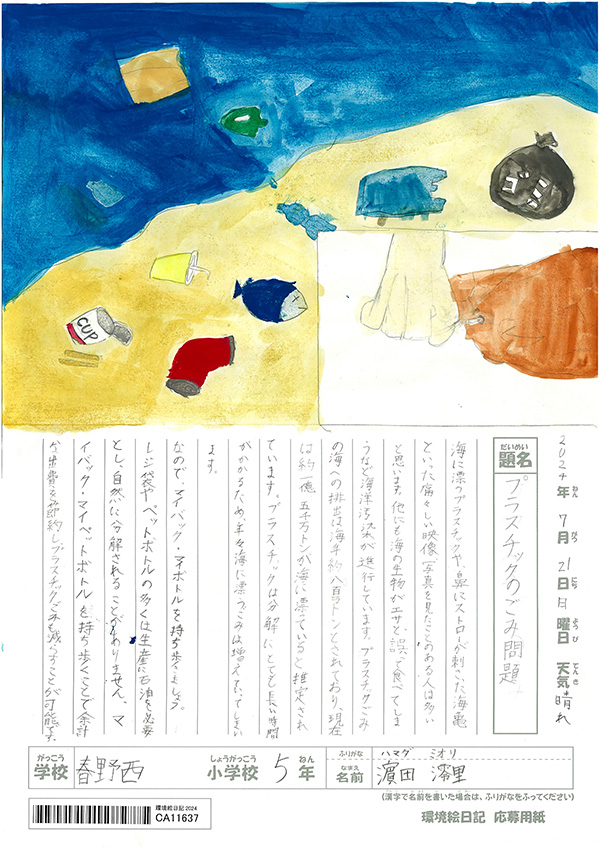 ゴミ
CUP
2024年 7月 21日 月曜日 天気 晴れ
ねん がつ にち ようび てんき
だいめい
題名 プラスチックのごみ問題
海に漂うプラスチックや、鼻にストローが刺さった海亀
といった痛々しい映像、写真を見たことのある人は多い
と思います。他にも海の生物がエサと誤って食べてしま
うなど海洋汚染が進行しています。プラスチックごみ
の海への排出は毎年約八百万トンとされており、現在
は約一億五千万トンが海に漂っていると推定され
ています。プラスチックは分解にとても長い時間
がかかるため年々海に漂うごみは増えていってしまい
ます。
なのでマイバック・マイボトルを持ち歩くましょう。
レジ袋やペットボトルの多くは生産に石油を必要
とし、自然に分解されることがありません。マ
イバック・マイペットボトルを持ち歩くことで余計
な出費を節約しプラスチックごみも減らすことが可能です。
がっこう しょうがっこう ねん ふりがな ハマダ ミオリ
学校 春野西 小学校 5年 なまえ 名前 濵田 澪里
(漢字で名前を書いた場合は、ふりがなをふってください)
環境絵日記2024
CA11637
環境絵日記 応募用紙